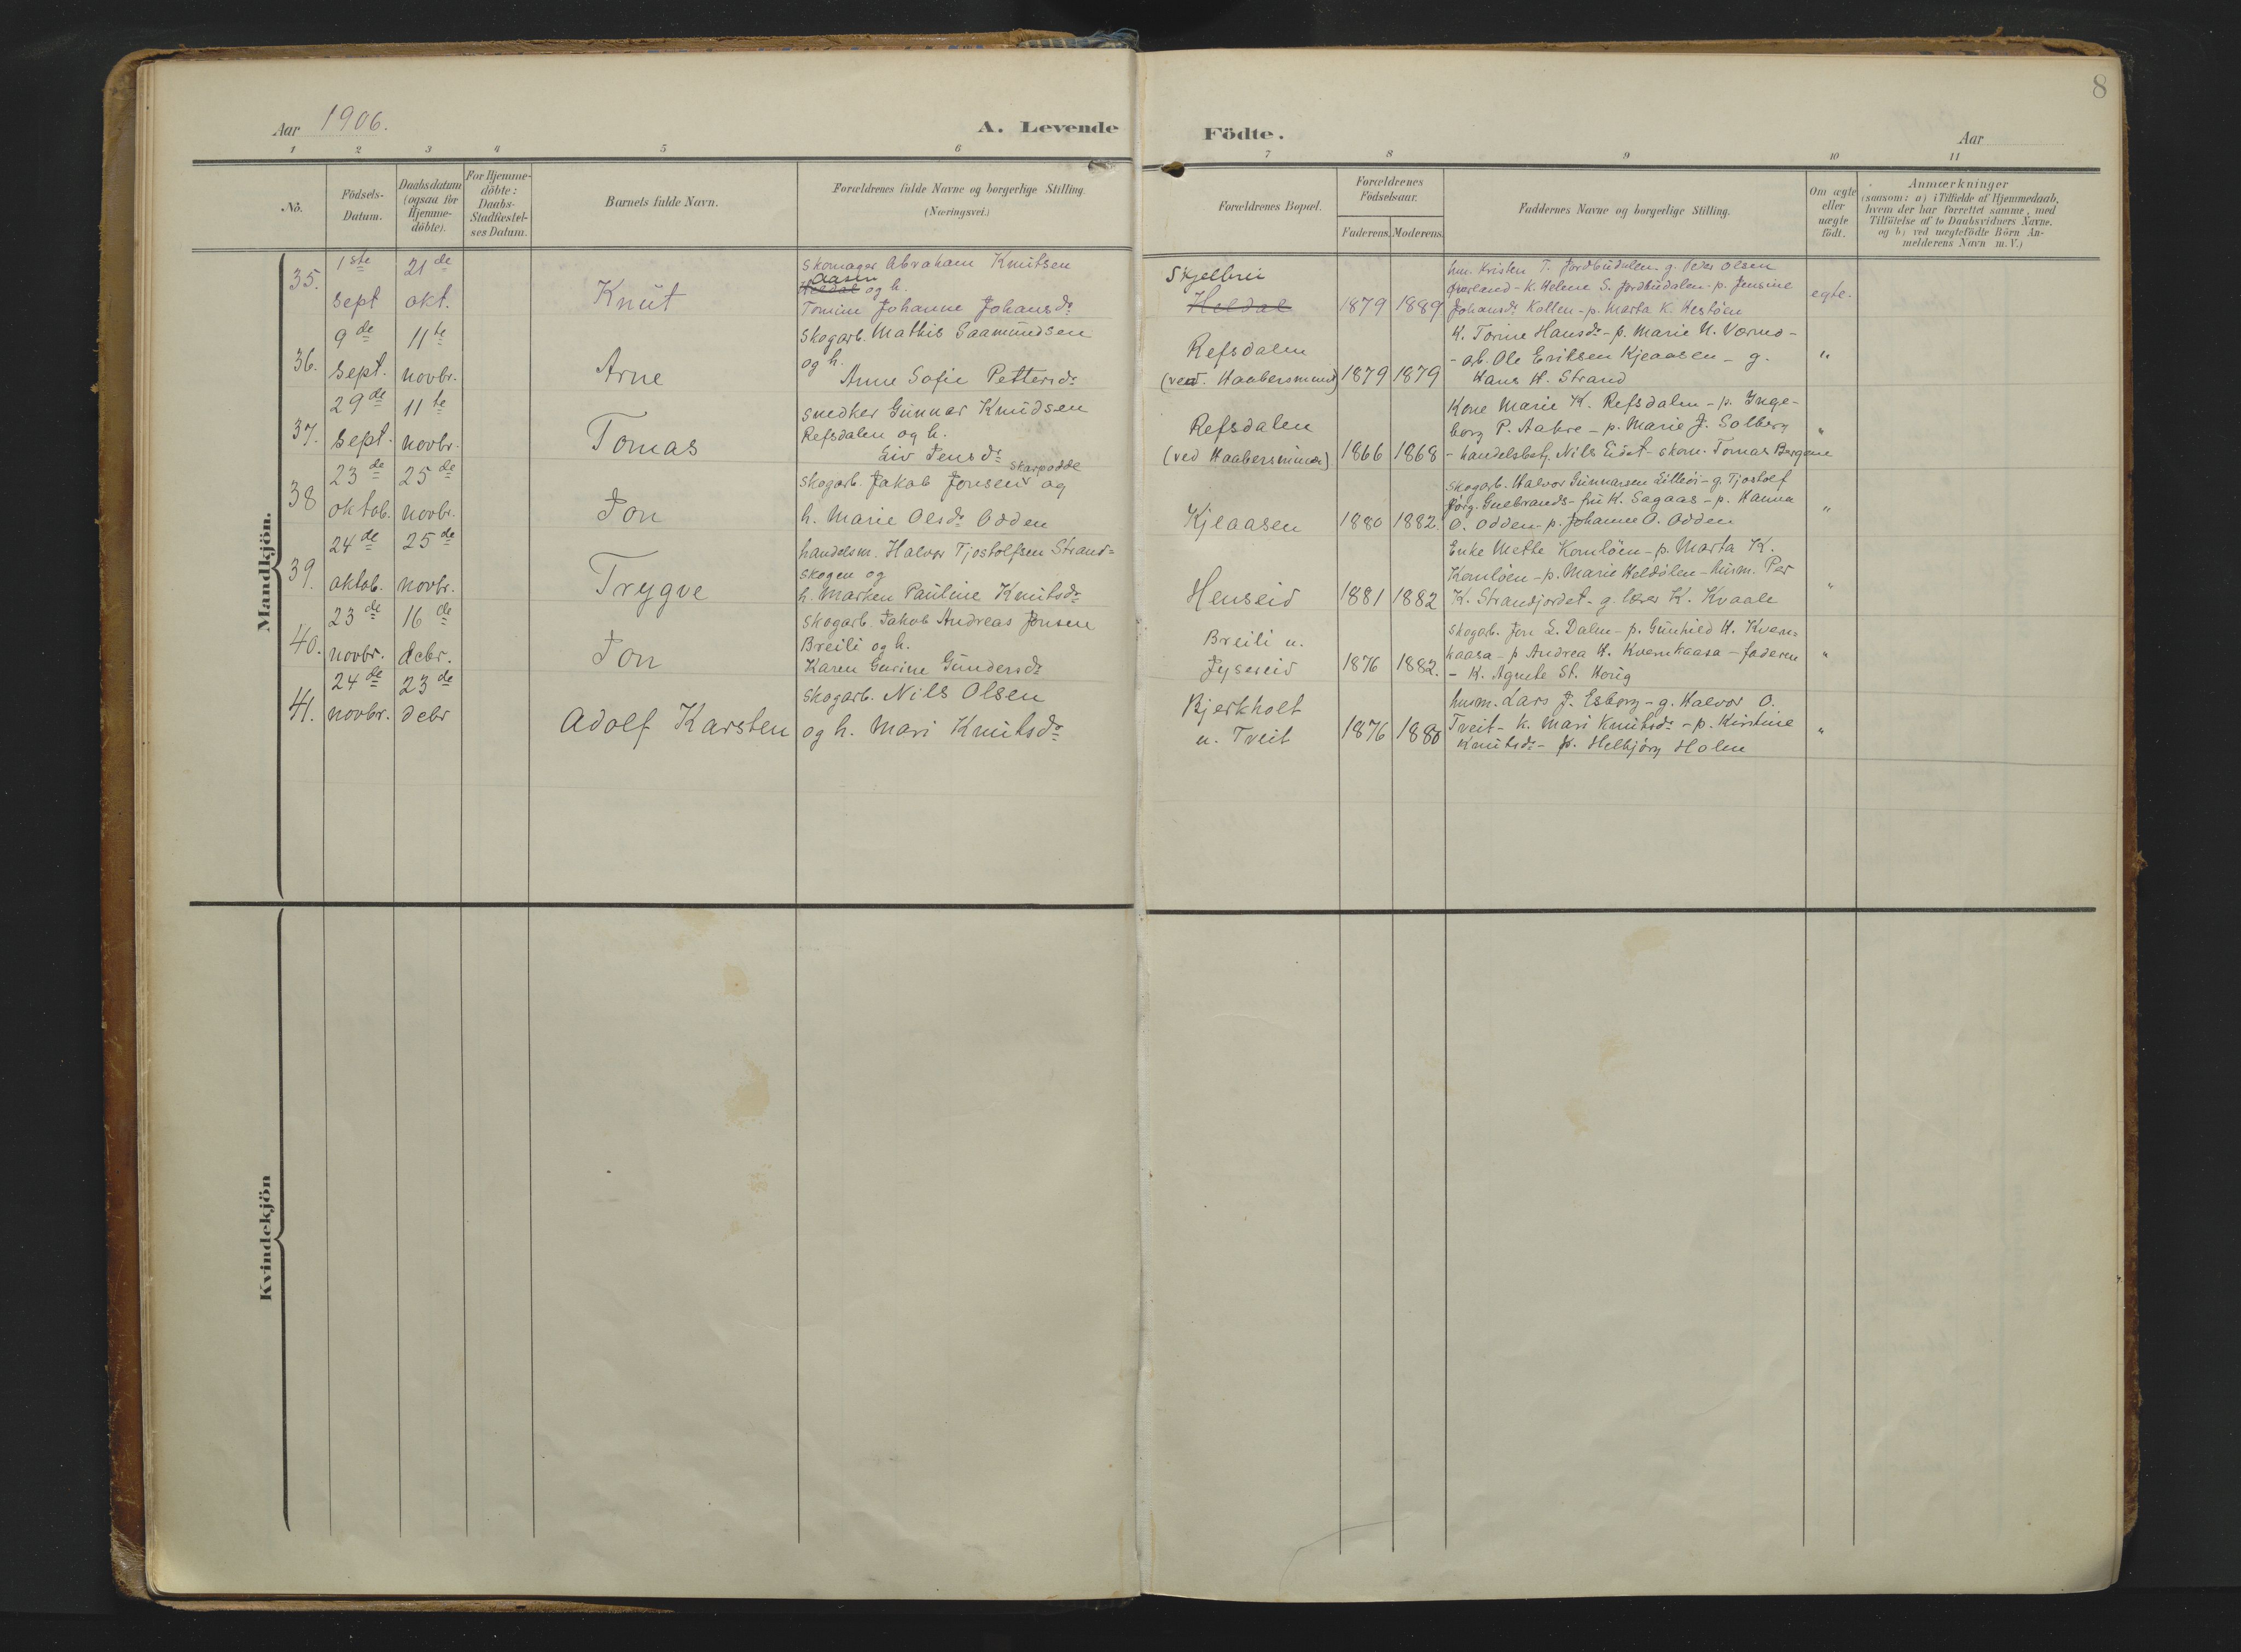 8
Aar 1906.
A. Levende Födte.
Aar
1 2 3 4 5 6 7 8 9 10 11
No.
Födsels-Datum.
Daabsdatum (ogsaa for Hjemme-döbte).
For Hjemme-döbte: Daabs-Stadfæstel-ses Datum.
Barnets fulde Navn.
Forældrenes fulde Navne og borgerlige Stilling.
(Næringsvei.)
Forældrenes Bopæl.
Forældrenes Födselsaar.
Faderens. Moderens.
Faddernes Navne og borgerlige Stilling.
Om ægte eller uægte födt.
Anmærkninger
(saasom: a) i Tilfælde af Hjemmedaab,
hvem der har forrettet samme, med
Tilföielse af to Daabsvidners Navne.
og b) ved uægtefödte Börn An-
melderens Navn m. V.)
Mandkjön.
35.
1ste sept
21de okt.
Knut
Skomager Abraham Knutsen
Aasen
Heldal og h.
Tomine Johanne Johansdr
Skjelbrei
Heldal
1879 1889
hm. Kristen T. Jordbudalen - g. Peder Olsen
Øverland - k. Helene S. Jordbudalen - p. Jensine
Johansdr Kollen - p. Marta K. Hestöen
egte.
36.
9de sept.
11te novbr.
Arne
Skogarb. Mathis Saamundsen
og h.
Anne Sofie Pettersdr
Refsdalen
(ved. Haabersmund)
1879 1879
K. Torine Hansdr - p. Marie N.
- arb. Ole Eriksen Kjeaasen - g.
Hans H. Strand
"
37.
29de sept.
11te novbr.
Tomas
snedker Gunnar Knudsen
Refsdalen og h.
Liv Jensdr
Refsdalen
(ved Haabersmund)
1866 1868
Kone Marie K. Refsdalen - p. Inge-
borg P. Aakre - p. Marie J. Solberg
- handelsbetj. Nils Eidet - skom. Tomas Bergane
"
38
23de oktob.
25de novbr.
Jon
Skarpodde
skogarb. Jakob Jonsen og
h. Marie Olsdr Odden
Kjeaasen
1880 1882.
skogarb. Halvor Gunnarsen Lilleöi - g. Tjostolf
Jörg. - fru K. Sagaas - p. Hanna
O. Odden - p. Johanne O. Odden
"
39.
24de oktob.
25de novbr.
Trygve
handelsm. Halvor Tjostolfsen Strand=
skogen og
h. Marken Pauline Knutsdr
Henseid
1881 1882
Enke Mette Komlöen - p. Marta K.
Komlöen - p. Marie Heldölen - husm. Per
K. Strandjordet - g. lærer K. Kvaale
"
40.
23de novbr.
16de debr.
Jon
Skogarb. Jakob Andreas Jonsen
Breili og h.
Karen Gurine Gundersdr
Breili u.
Jyseseid
1876 1882.
Skogarb. Jon L. Dalen - p. Gunhild H. Kvern=
kaasa - p Andrea H. Kvernkaasa - faderen
- K. Agnete St. Hörig
"
41.
24de novbr.
23de debr
Adolf Karsten
skogarb. Nils Olsen
og h. Mari Knutsdr
Bjerkholt
u. Tveit
1876 1880
husm. Lars J. Esborg - g. Halvor O.
Tveit - k. Mari Knutsdr - p. Kirstine
Knutsdr - p. Helbjörg Holen
"
Kvindekjön